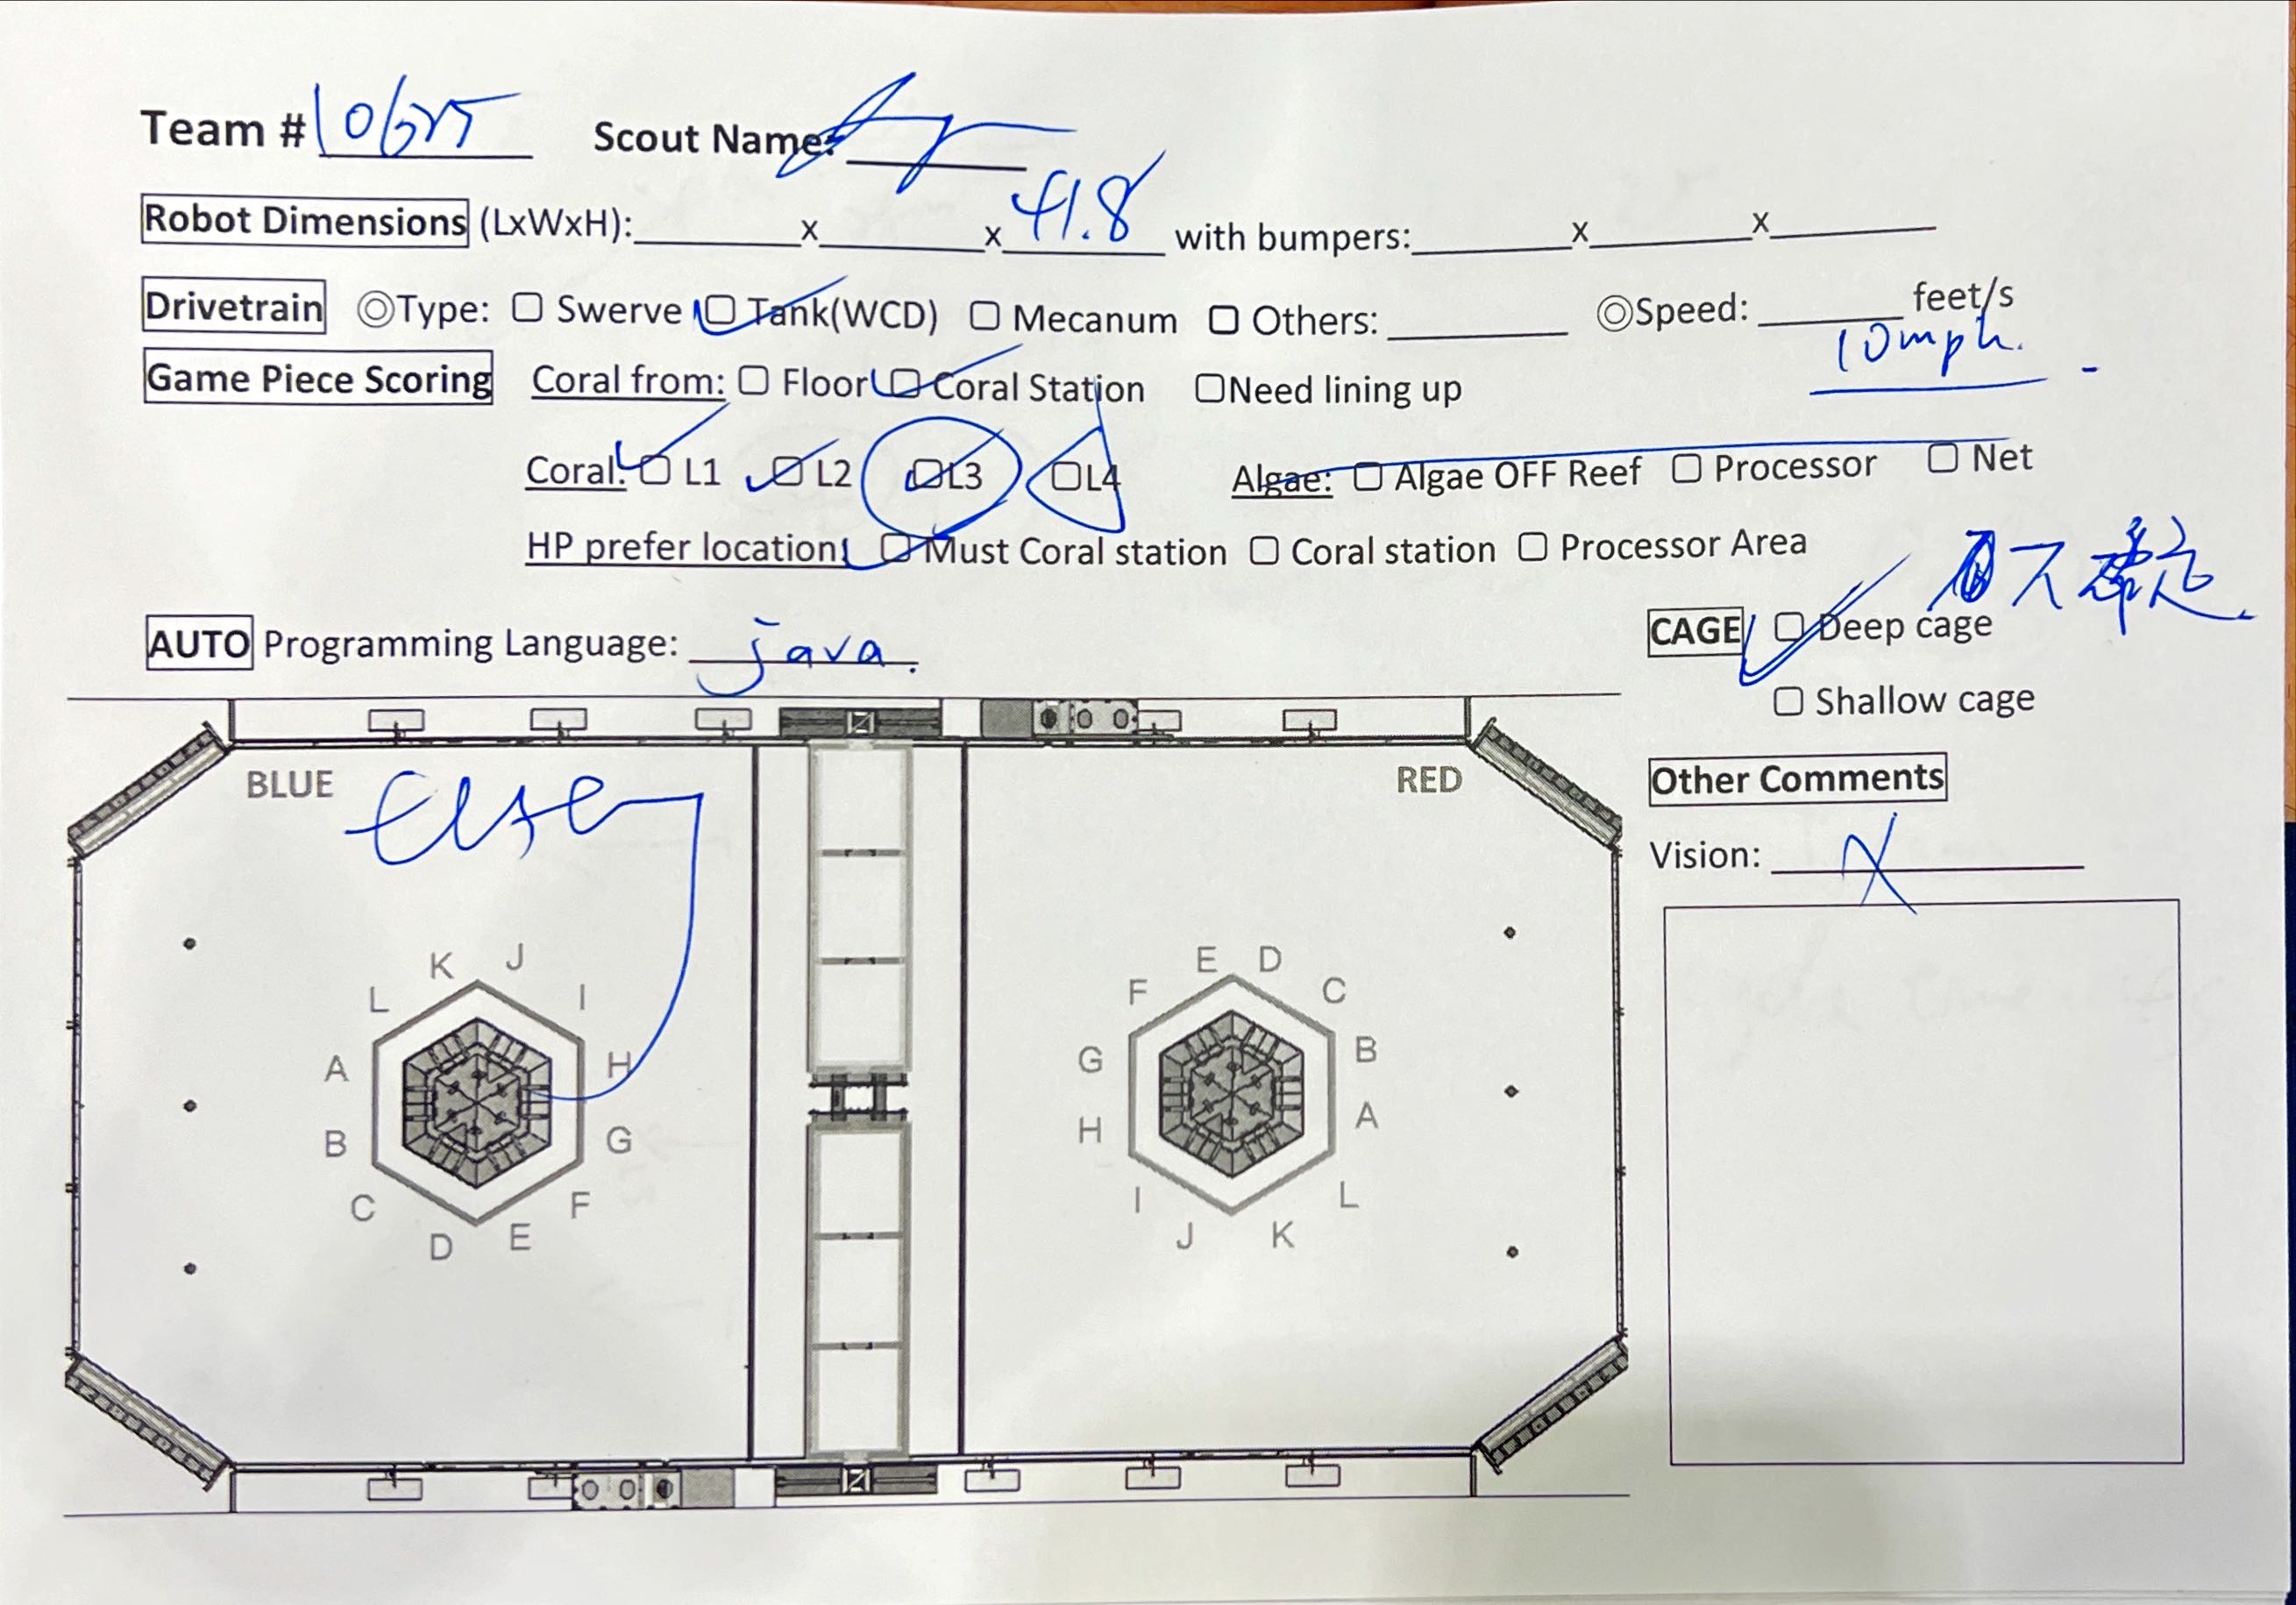 Team # Scout Name:
Robot Dimensions (LxWxH):______x______x 41.8 with bumpers:______x______x______
Drivetrain ◎Type: ☐ Swerve ☑ Tank(WCD) ☐ Mecanum ☐ Others:______ ◎Speed: ______ feet/s
10mph.
Game Piece Scoring Coral from: ☐ Floor ☑ Coral Station ☐Need lining up
Coral: ☑ L1 ☑ L2 ☑L3 ☐L4 Algae: ☐ Algae OFF Reef ☐ Processor ☐ Net
HP prefer location: ☑ Must Coral station ☐ Coral station ☐ Processor Area
AUTO Programming Language: java.
CAGE ☑ Deep cage
☐ Shallow cage
Other Comments
Vision: X
BLUE RED
K J
L I
A H
B G
C F
D E
E D
F C
G B
H A
I L
J K